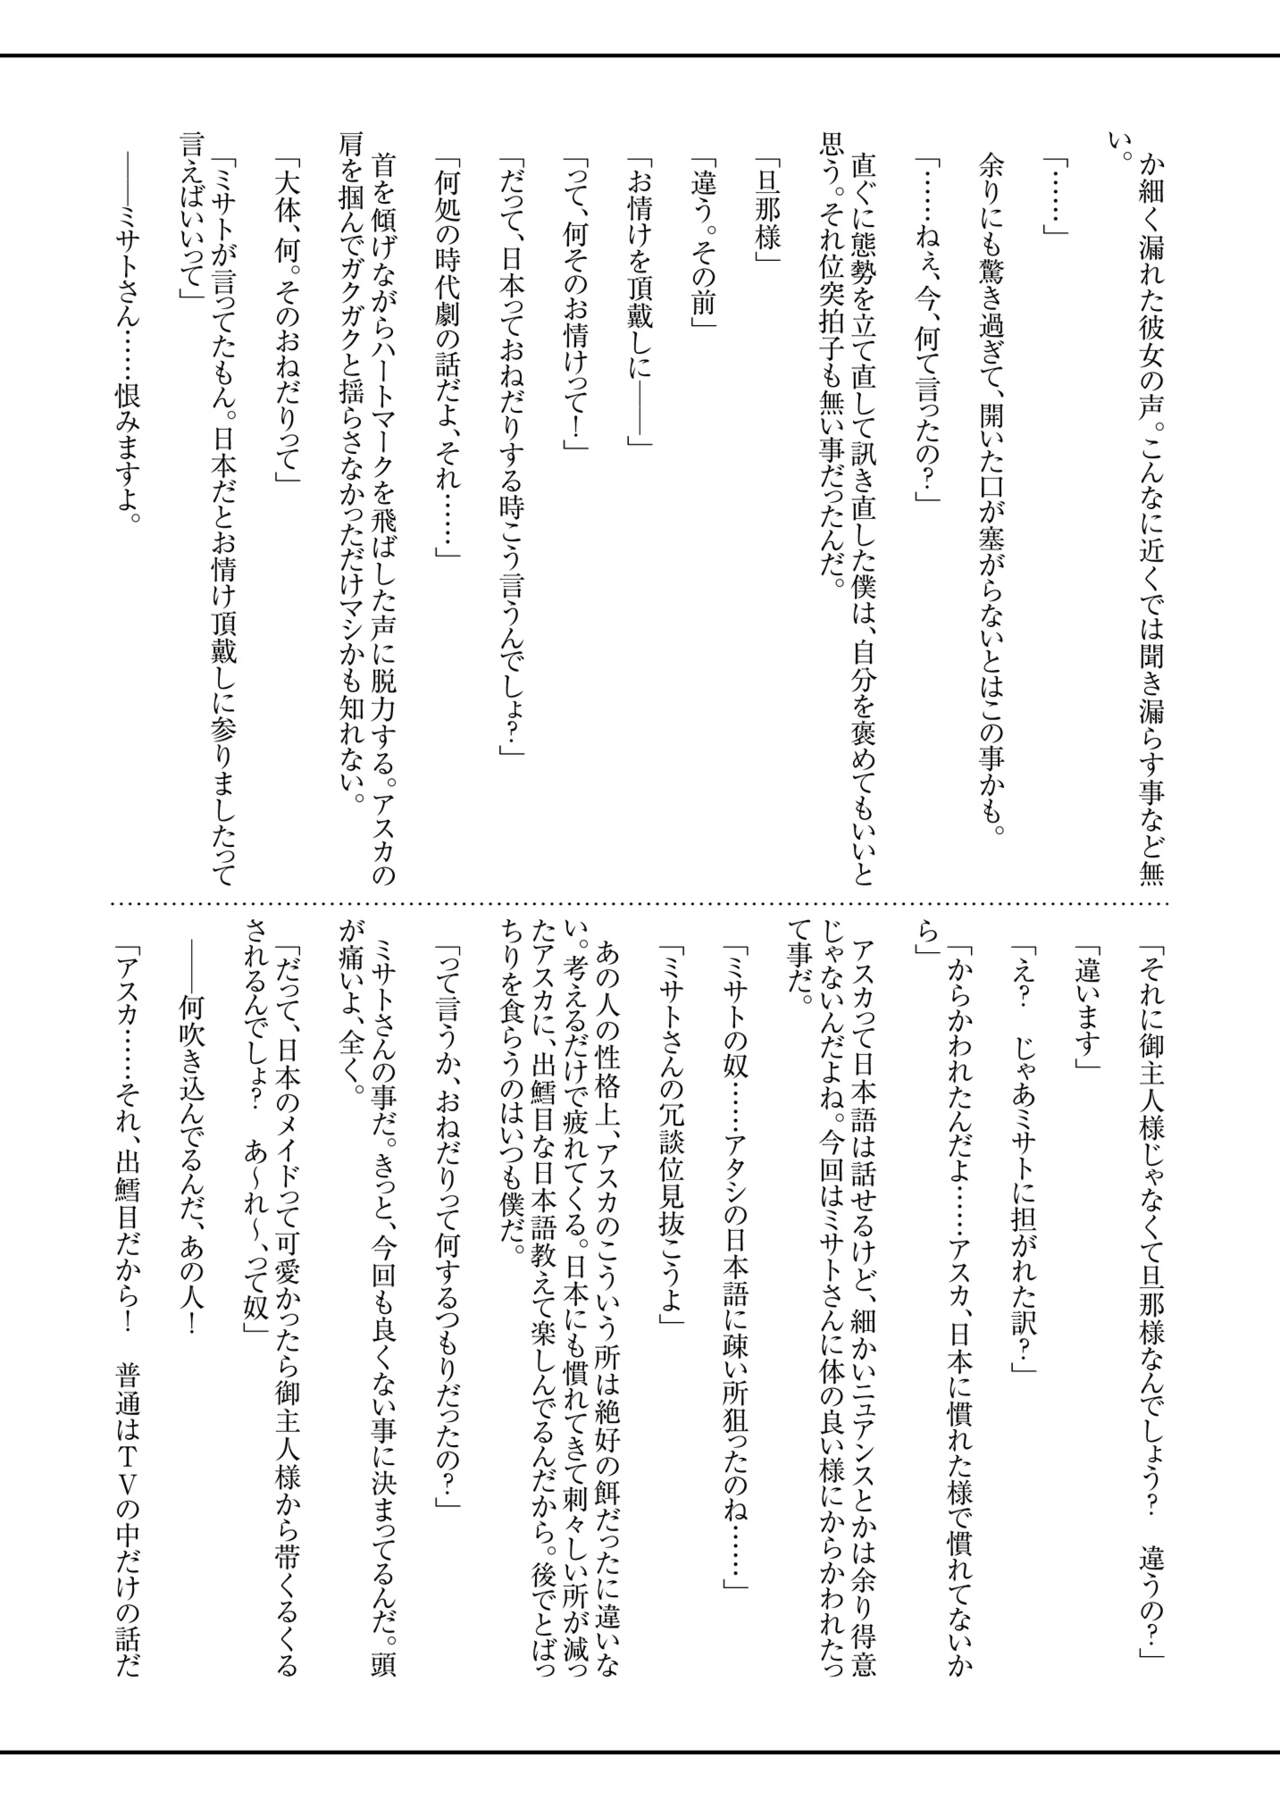 か細く漏れた彼女の声。こんなに近くでは聞き漏らす事など無
い。
「……」
余りにも驚き過ぎて、開いた口が塞がらないとはこの事かも。
「……ねぇ、今、何て言ったの？」
直ぐに態勢を立て直して訊き直した僕は、自分を褒めてもいいと
思う。それ位突拍子も無い事だったんだ。
「旦那様」
「違う。その前」
「お情けを頂戴しに――」
「って、何そのお情けって！」
「だって、日本っておねだりする時こう言うんでしょ？」
「何処の時代劇の話だよ、それ……」
首を傾げながらハートマークを飛ばした声に脱力する。アスカの
肩を掴んでガクガクと揺らさなかっただけマシかも知れない。
「大体、何。そのおねだりって」
「ミサトが言ってたもん。日本だとお情け頂戴しに参りましたって
言えばいいって」
――ミサトさん……恨みますよ。
「それに御主人様じゃなくて旦那様なんでしょう？　違うの？」
「違います」
「え？　じゃあミサトに担がれた訳？」
「からかわれたんだよ……アスカ、日本に慣れた様で慣れてないか
ら」
アスカって日本語は話せるけど、細かいニュアンスとかは余り得意
じゃないんだよね。今回はミサトさんに体の良い様にからかわれたっ
て事だ。
「ミサトの奴……アタシの日本語に疎い所狙ったのね……」
「ミサトさんの冗談位見抜こうよ」
あの人の性格上、アスカのこういう所は絶好の餌だったに違いな
い。考えるだけで疲れてくる。日本にも慣れてきて刺々しい所が減っ
たアスカに、出鱈目な日本語教えて楽しんでるんだから。後でとばっ
ちりを食らうのはいつも僕だ。
「って言うか、おねだりって何するつもりだったの？」
ミサトさんの事だ。きっと、今回も良くない事に決まってるんだ。頭
が痛いよ、全く。
「だって、日本のメイドって可愛かったら御主人様から帯くるくる
されるんでしょ？　あ～れ～、って奴」
――何吹き込んでるんだ、あの人！
「アスカ……それ、出鱈目だから！　普通はTVの中だけの話だ